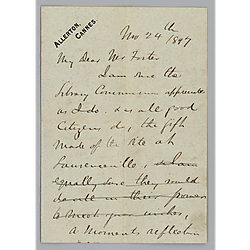 ALLERTON,
CANNES.
Nov 24th
1897
My Dear Mr Foster
I am sure the
Library Commission appreciate
as I do. & as all good
Citizens do, the gift
made of the site at
Lawrenceville,
equally sure they would
in their power
to meet your wishes,
a moments reflection